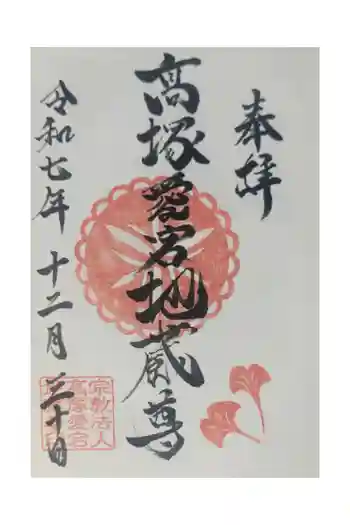 奉拝
高塚愛宕地蔵尊
令和七年 十二月 三十日
宗教法人
高塚愛宕